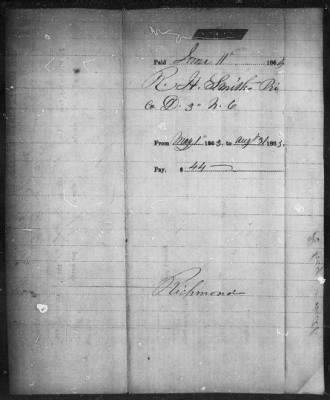 Paid June 11 1864
R. H. Smith Pri
Co D. 3d N. C
From May 1st 1863, to Augt 31 1863.
Pay. $ 44
Richmond